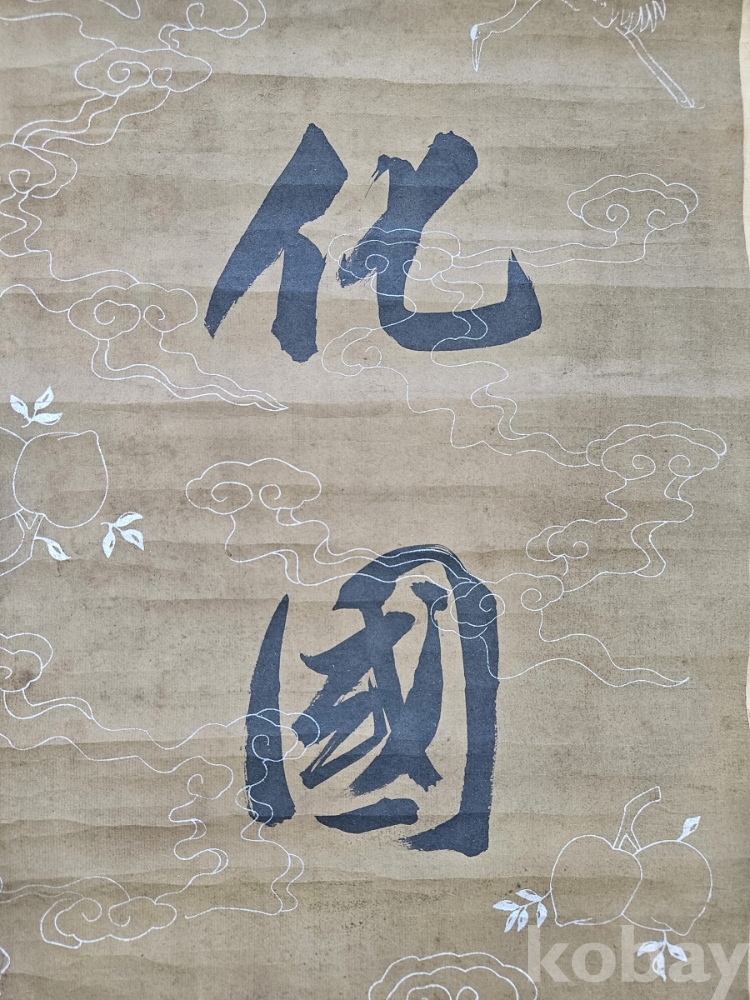 化
國
kobay